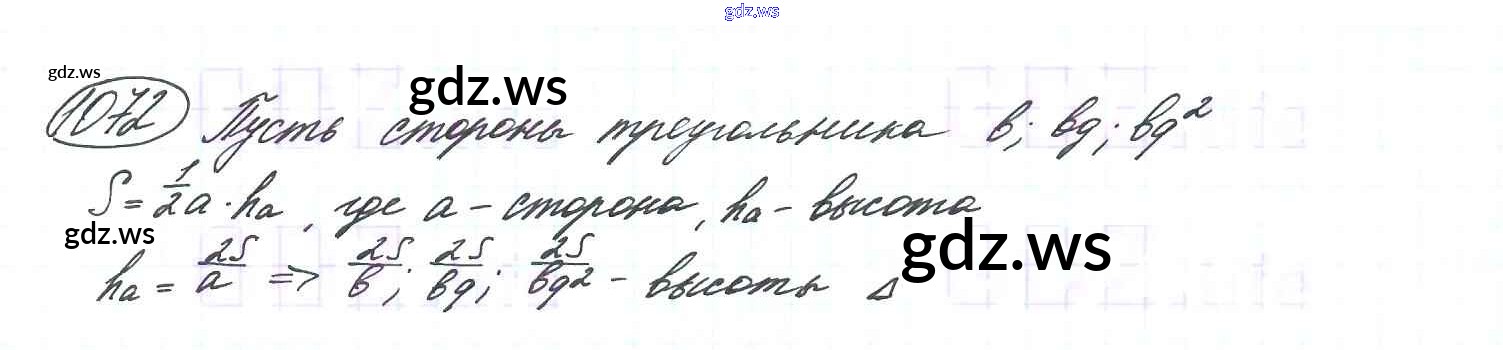 gdz.ws
gdz.ws
1072 Пусть стороны треугольника b; bq; bq² gdz.ws
S = 1/2 a · hₐ, где a - сторона, hₐ - высота
gdz.ws
hₐ = 2S/a => 2S/b; 2S/bq; 2S/bq² - высоты Δ gdz.ws